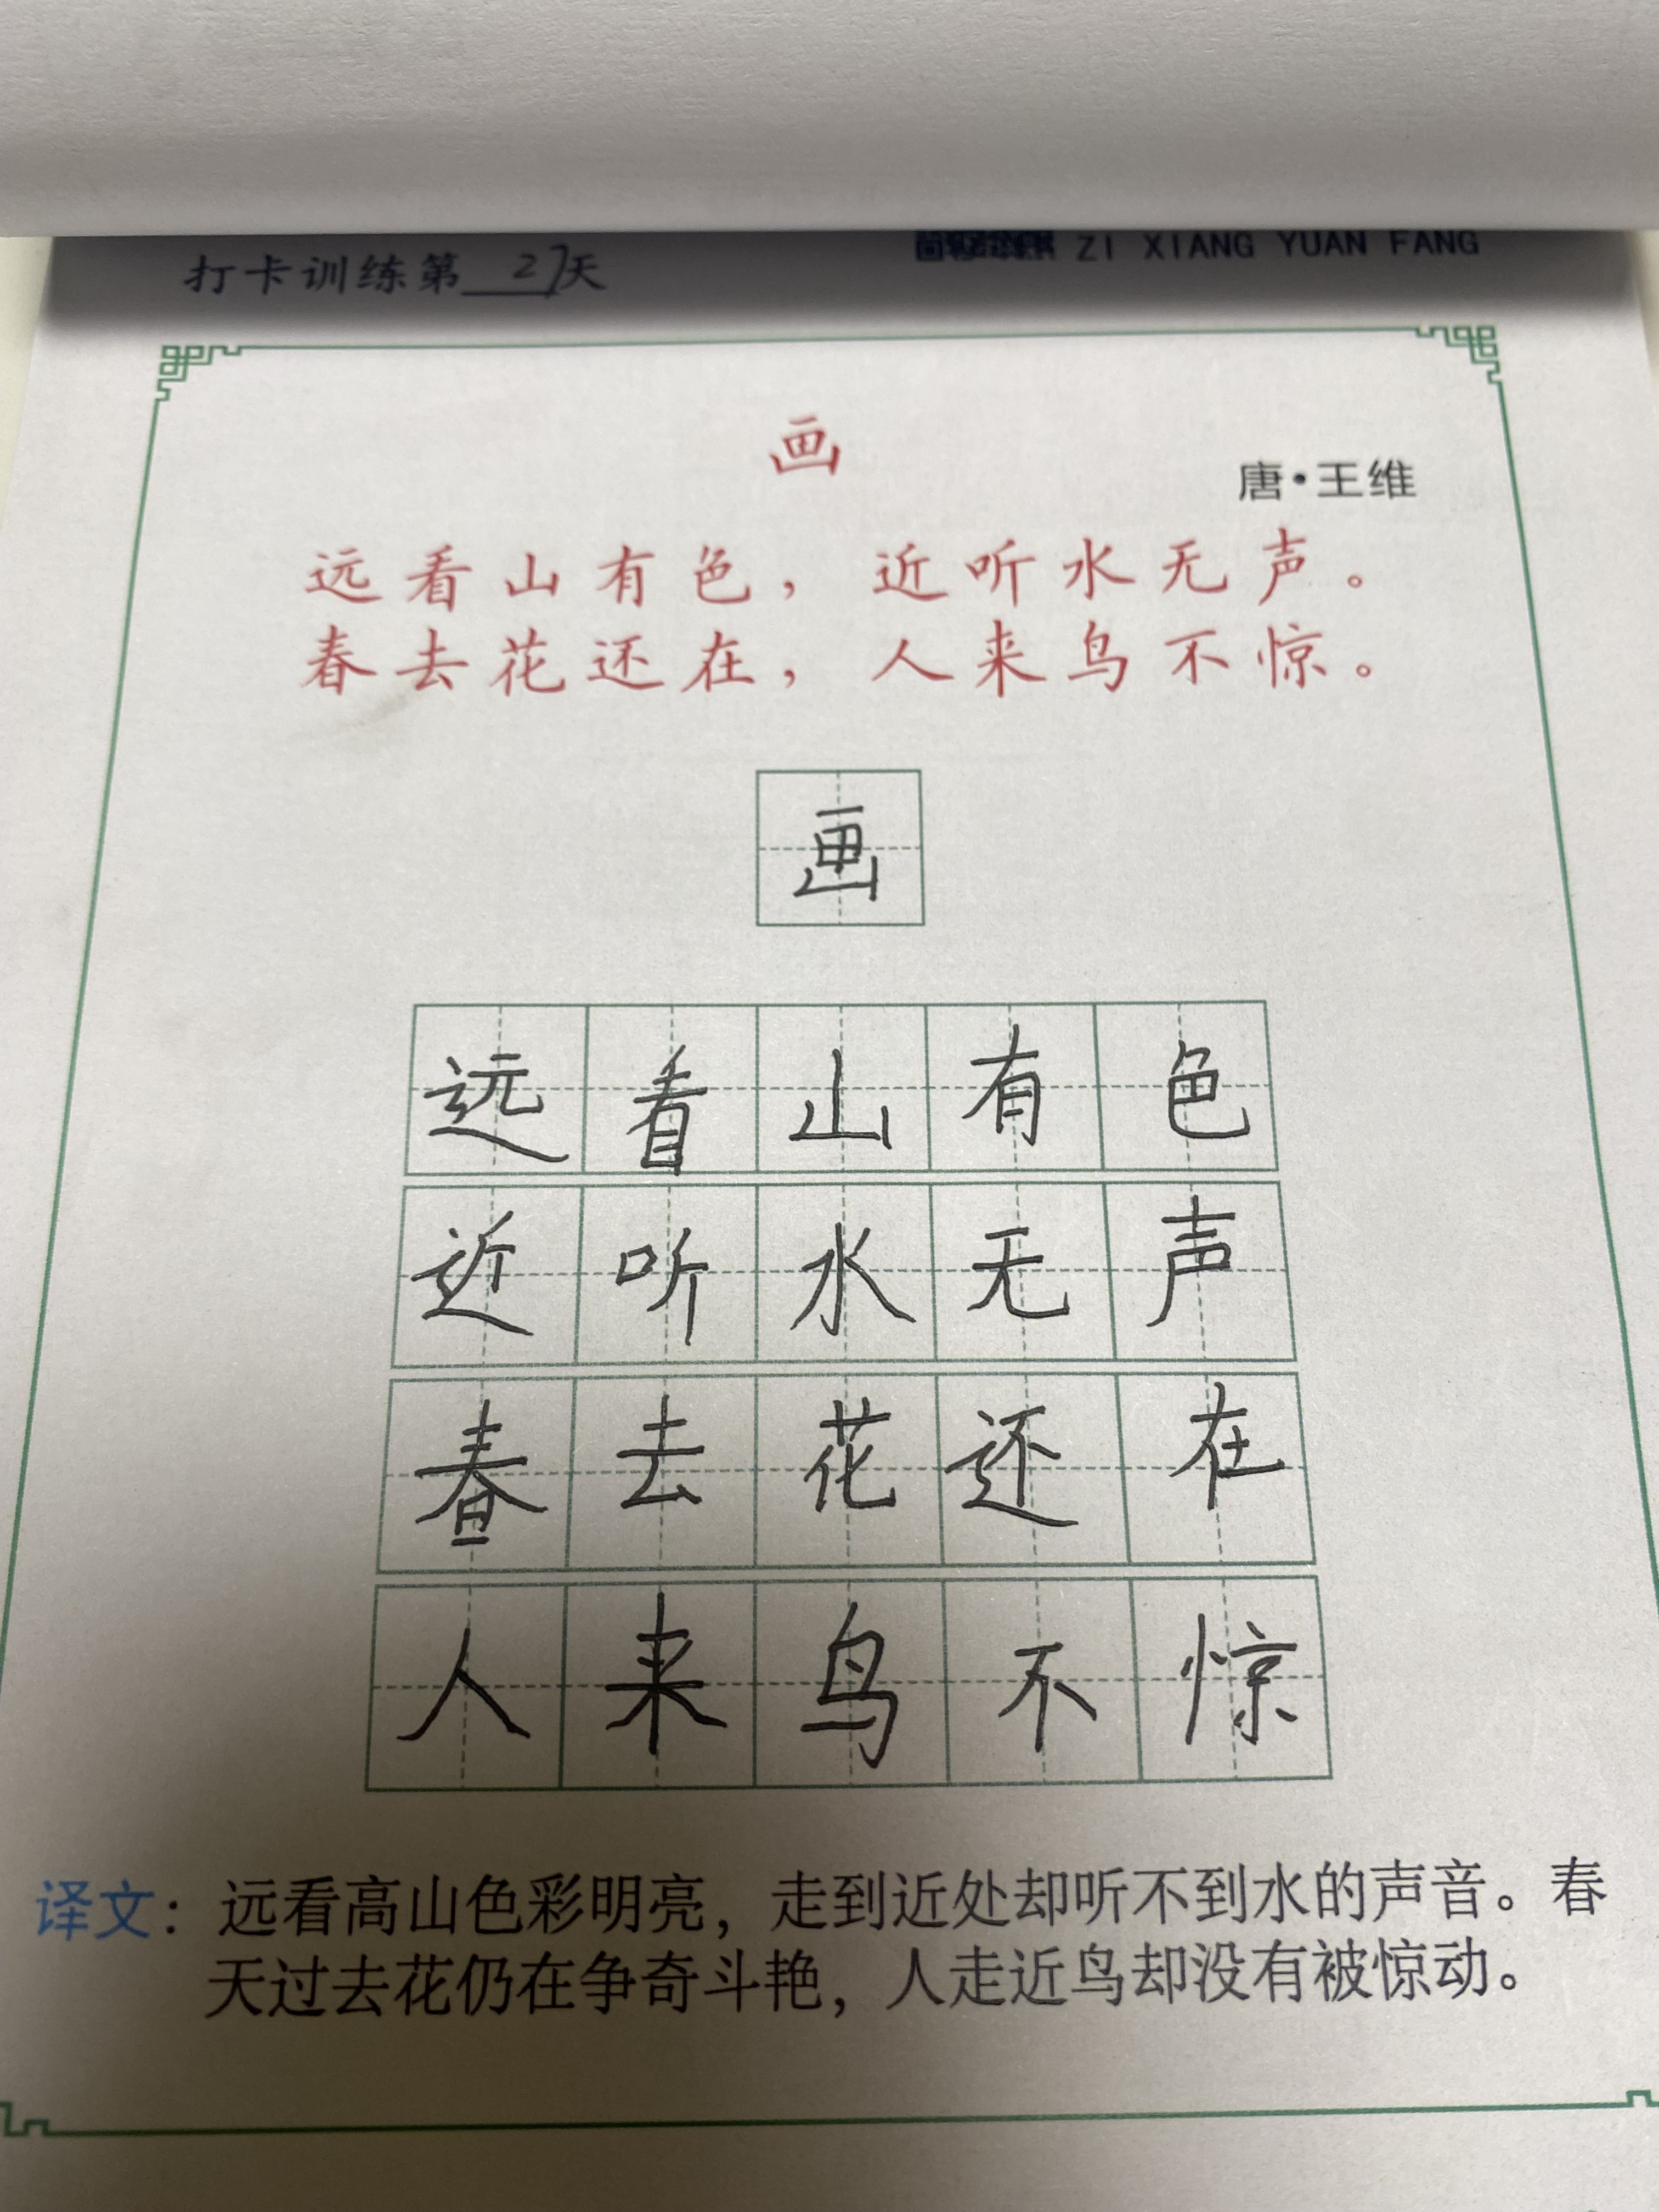 打卡训练第27天
ZI XIANG YUAN FANG
画
唐·王维
远看山有色，近听水无声。
春去花还在，人来鸟不惊。
画
远看山有色
近听水无声
春去花还在
人来鸟不惊
译文：远看高山色彩明亮，走到近处却听不到水的声音。春
天过去花仍在争奇斗艳，人走近鸟却没有被惊动。